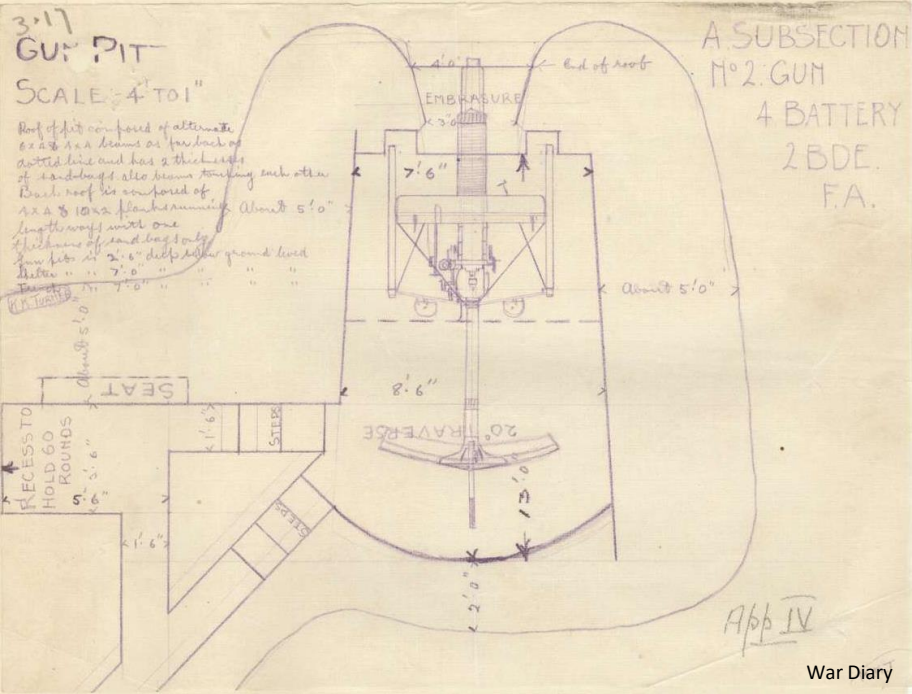 3·17
GUN PIT
SCALE 4' TO 1"
Roof of pit composed of alternate
6 x 4 & 4 x 4 beams as far back as
dotted line and has 2 thicknesses
of sandbags. also beams touching each other
Back roof is composed of
4 x 4 & 10 x 2 planks running
length ways with one
thickness of sand bags only
Gun pit is 2'·6" deep below ground level
Shelter " " 7'·0" " " "
Trench " 7'·0" " " " "
A. SUBSECTION
No 2. GUN
4 BATTERY
2 BDE.
F.A.
4'0"
End of roof
EMBRASURE
3'0
7'·6"
About 5'·0"
About 5'·0"
About 5'0
8'·6"
20° TRAVERSE
13'·0"
2'0"
SEAT
RECESS TO
HOLD 60
ROUNDS
3'·6"
5'·6"
1'·6"
1'·6"
STEPS
STEPS
App IV
War Diary